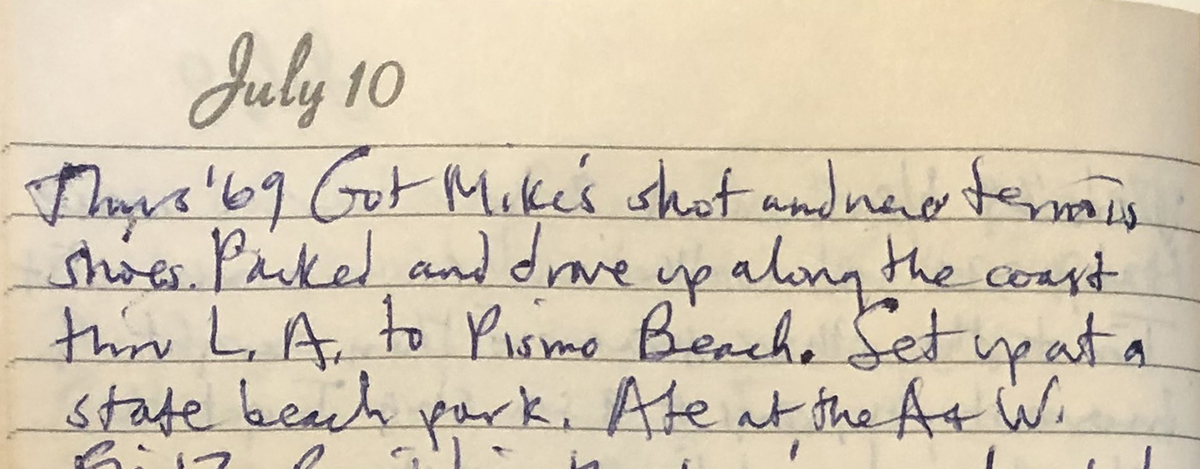 July 10
Thurs '69 Got Mike's shot and new tennis
shoes. Packed and drove up along the coast
thru L.A. to Pismo Beach. Set up at a
state beach park. Ate at the A & W.